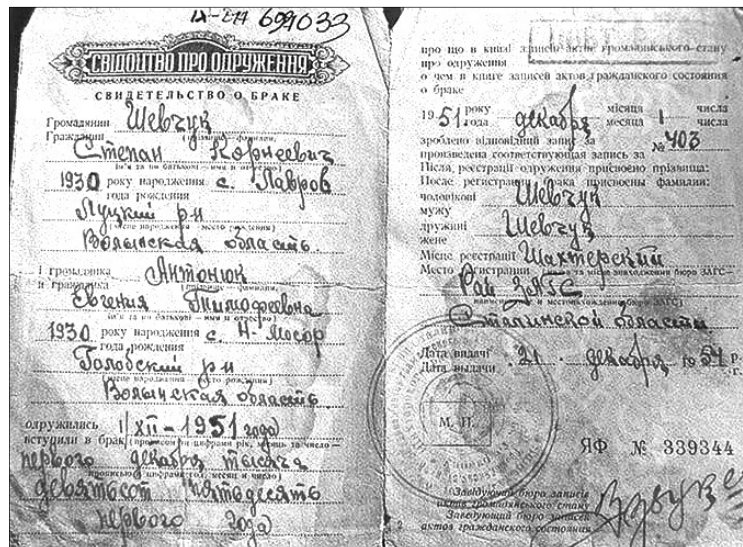 ІХ-ЕП 699033
СВІДОЦТВО ПРО ОДРУЖЕННЯ
СВИДЕТЕЛЬСТВО О БРАКЕ
Громадянин Шевчук
Гражданин (прізвище — фамилия,
Степан Корнеевич
ім'я та по батькові — имя и отчество)
1930 року народження с. Лавров
года рождения
Луцкий р-н
(місце народження — место рождения)
Волынская область
і громадянка Антонюк
и гражданка (прізвище — фамилия,
Евгения Тимофеевна
ім'я та по батькові — имя и отчество)
1930 року народження с. Н-Мосор
года рождения
Голобский р-н
(місце народження — место рождения)
Волынская область
одружились 1/XII-1951 года
вступили в брак (прописом і цифрами рік, місяць та число —
первого декабря тысяча
прописью и цифрами год, месяц и число)
девятьсот пятьдесять
первого года
про що в книзі записів актів громадянського стану
про одруження
о чем в книге записей актов гражданского состояния
о браке
1951 року декабря місяця 1 числа
года месяца числа
зроблено відповідний запис за № 403
произведена соответствующая запись за
Після реєстрації одруження присвоєно прізвища:
После регистрации брака присвоены фамилии:
чоловікові Шевчук
мужу
дружині Шевчук
жене
Місце реєстрації Шахтерский
Место регистрации (назва та місце знаходження бюро ЗАГС—
Рай ЗАГС
наименование и местонахождение бюро ЗАГС)
Сталинской области
Дата видачі 21 декабря 1954 р.
Дата выдачи г.
М. П.
ЯФ № 339344
Завідуючий бюро записів
актів громадянського стану
Заведующий бюро записей
актов гражданского состояния
2